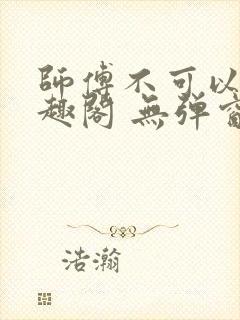 師傅不可以
趣閣 無彈窗
浩瀚